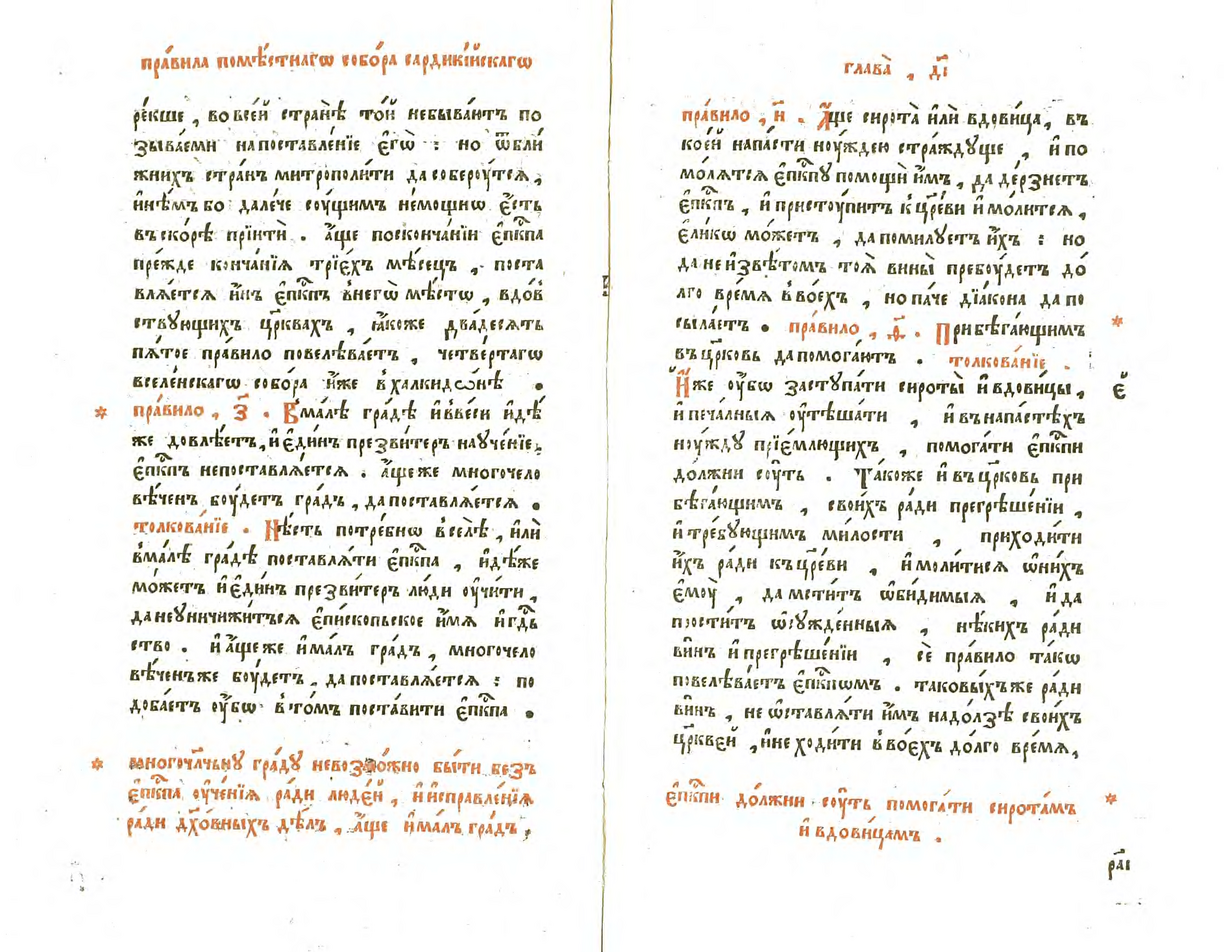 пра́вила помѣ́стнагѡ собо́ра сардикі́йскагѡ
ре́кше , во все́й странѣ̀ то́й небыва́ютъ по
зыва́еми напоставле́нїе є҆гѡ̀ : но ѿ бли
жнихъ стра́нъ митрополи́ти да соберꙋ́тсѧ ,
и҆нѣ́мъ бо дале́че сꙋ́щимъ не́мощнѡ є҆́сть
въско́рѣ прїитѝ . а҆́ще посконча́нїи є҆пⷭ҇кпа
пре́жде конча́нїѧ трїе́хъ мѣ́сецъ , поста
влѧ́етсѧ и҆́нъ є҆пⷭ҇кпъ внегѡ̀ мѣ́стѡ , вдо́в
ствꙋющихъ цр҃квахъ , ꙗ҆́коже два́десѧть
пѧ́тое пра́вило повелѣва́етъ , четве́ртагѡ
вселе́нскагѡ собо́ра и҆́же в халкидо́нѣ .
пра́вило , з҃ . В ма́лѣ гра́дѣ и҆ в ве́си и҆дѣ́
же довлѣ́етъ , и҆ є҆ди́нъ презви́теръ наꙋче́нїе ,
є҆пⷭ҇кпъ непоставлѧ́етсѧ . а҆́ще же многочело
вѣ́ченъ бꙋ́детъ гра́дъ , да поставлѧ́етсѧ .
толкова́нїе . Нѣ́сть потре́бнѡ в селѣ̀ , и҆лѝ
в ма́лѣ гра́дѣ поставлѧ́ти є҆пⷭ҇кпа , и҆дѣ́же
мо́жетъ и҆ є҆ди́нъ презви́теръ лю́ди ᲂу҆чи́ти ,
да неꙋничижи́тсѧ є҆пи́скопьское и҆́мѧ и҆ гдⷭ҇ь
ство . и҆ а҆́ще же и҆ ма́лъ гра́дъ , многочело
вѣ́ченъ же бꙋ́детъ , да поставлѧ́етсѧ : по
доба́етъ ᲂу҆́бѡ в то́мъ поста́вити є҆пⷭ҇кпа .
многочл҃чьнꙋ гра́дꙋ невозмо́жно бы́ти безъ
є҆пⷭ҇кпа ᲂу҆че́нїѧ ра́ди люде́й , и҆ и҆справле́нїѧ
ра́ди дх҃о́вныхъ дѣ́лъ , а҆́ще и҆ ма́лъ гра́дъ ,
глава̀ , д҃і
пра́вило , и҃ . А҆́ще сирота̀ и҆лѝ вдови́ца , въ
ко́ей напа́сти нꙋ́ждею стра́ждꙋще , и҆ по
мо́лѧтсѧ є҆пⷭ҇кпꙋ помощѝ и҆̀мъ , да де́рзнетъ
є҆пⷭ҇кпъ , и҆ пристꙋ́питъ к цр҃е́ви и҆ мо́литсѧ ,
є҆ли́кѡ мо́жетъ , да поми́лꙋетъ и҆́хъ : но
да не и҆звѣ́томъ тоѧ̀ вины̀ пребꙋ́детъ до́
лго вре́мѧ в во́ехъ , но па́че дїа́кона да по
сыла́етъ . пра́вило , ѳ҃ . Прибѣга́ющимъ
въ цр҃ковь да помога́ютъ . толкова́нїе .
И҆̀же ᲂу҆́бѡ застꙋпа́ти сироты̀ и҆ вдови́цы ,
и҆ печа́лныѧ ᲂу҆тѣша́ти , и҆ въ напа́стехъ
нꙋ́ждꙋ прїе́млющихъ , помога́ти є҆пⷭ҇кпи
до́лжни сꙋ́ть . Та́коже и҆ въ цр҃ковь при
бѣга́ющимъ , свои́хъ ра́ди прегрѣше́нїи ,
и҆ тре́бꙋющимъ ми́лости , приходи́ти
и҆́хъ ра́ди къ цр҃е́ви , и҆ моли́тисѧ ѡ҆ ни́хъ
є҆мꙋ̀ , да мсти́тъ ѡ҆би́димыѧ , и҆ да
прости́тъ ѡ҆сꙋжде́нныѧ , нѣ́кихъ ра́ди
ви́нъ и҆ прегрѣше́нїи , сѐ пра́вило та́кѡ
повелѣва́етъ є҆пⷭ҇кпѡмъ . таковы́хъ же ра́ди
ви́нъ , не ѡ҆ставлѧ́ти и҆́мъ надо́лзѣ свои́хъ
цр҃кве́й , и҆ не ходи́ти в во́ехъ до́лго вре́мѧ ,
є҃
є҆пⷭ҇кпи до́лжни сꙋ́ть помога́ти сирота́мъ
и҆ вдови́цамъ .
ра҃і